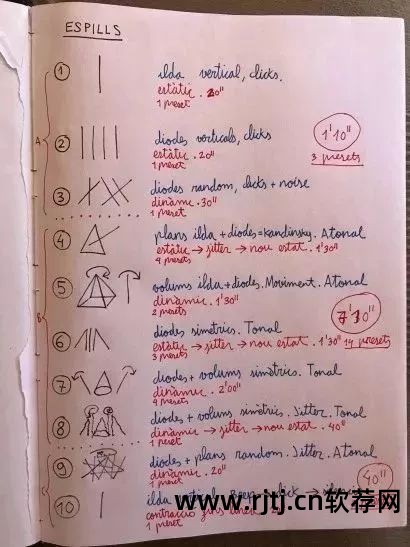 ESPILLS
A
1 ilda vertical, clicks.
estàtic . 20"
1 preset
2 diodes verticals, clicks
estàtic . 20"
1 preset
1'10"
3 presets
3 diodes random, clicks + noise
dinàmic . 30"
1 preset
B
4 plans ilda + diodes = Kandinsky. Atonal
estàtic → jitter → nou estat . 1'30"
4 presets
5 volums ilda + diodes. Moviment. Atonal
dinàmic . 1'30"
2 presets
7'10"
14 presets
6 diodes simètrics. Tonal
estàtic → jitter → nou estat . 1'30"
3 presets
7 diodes + volums simètrics. Tonal
dinàmic . 2'00"
4 presets
8 diodes + volums simètric. Jitter. Tonal
dinàmic → jitter → nou estat . 40"
1 preset
9 diodes + plans random. Jitter. Atonal
dinàmic . 20"
1 preset
40"
10 ilda
contracció fins
1 preset
www.rjtj.cn软荐网